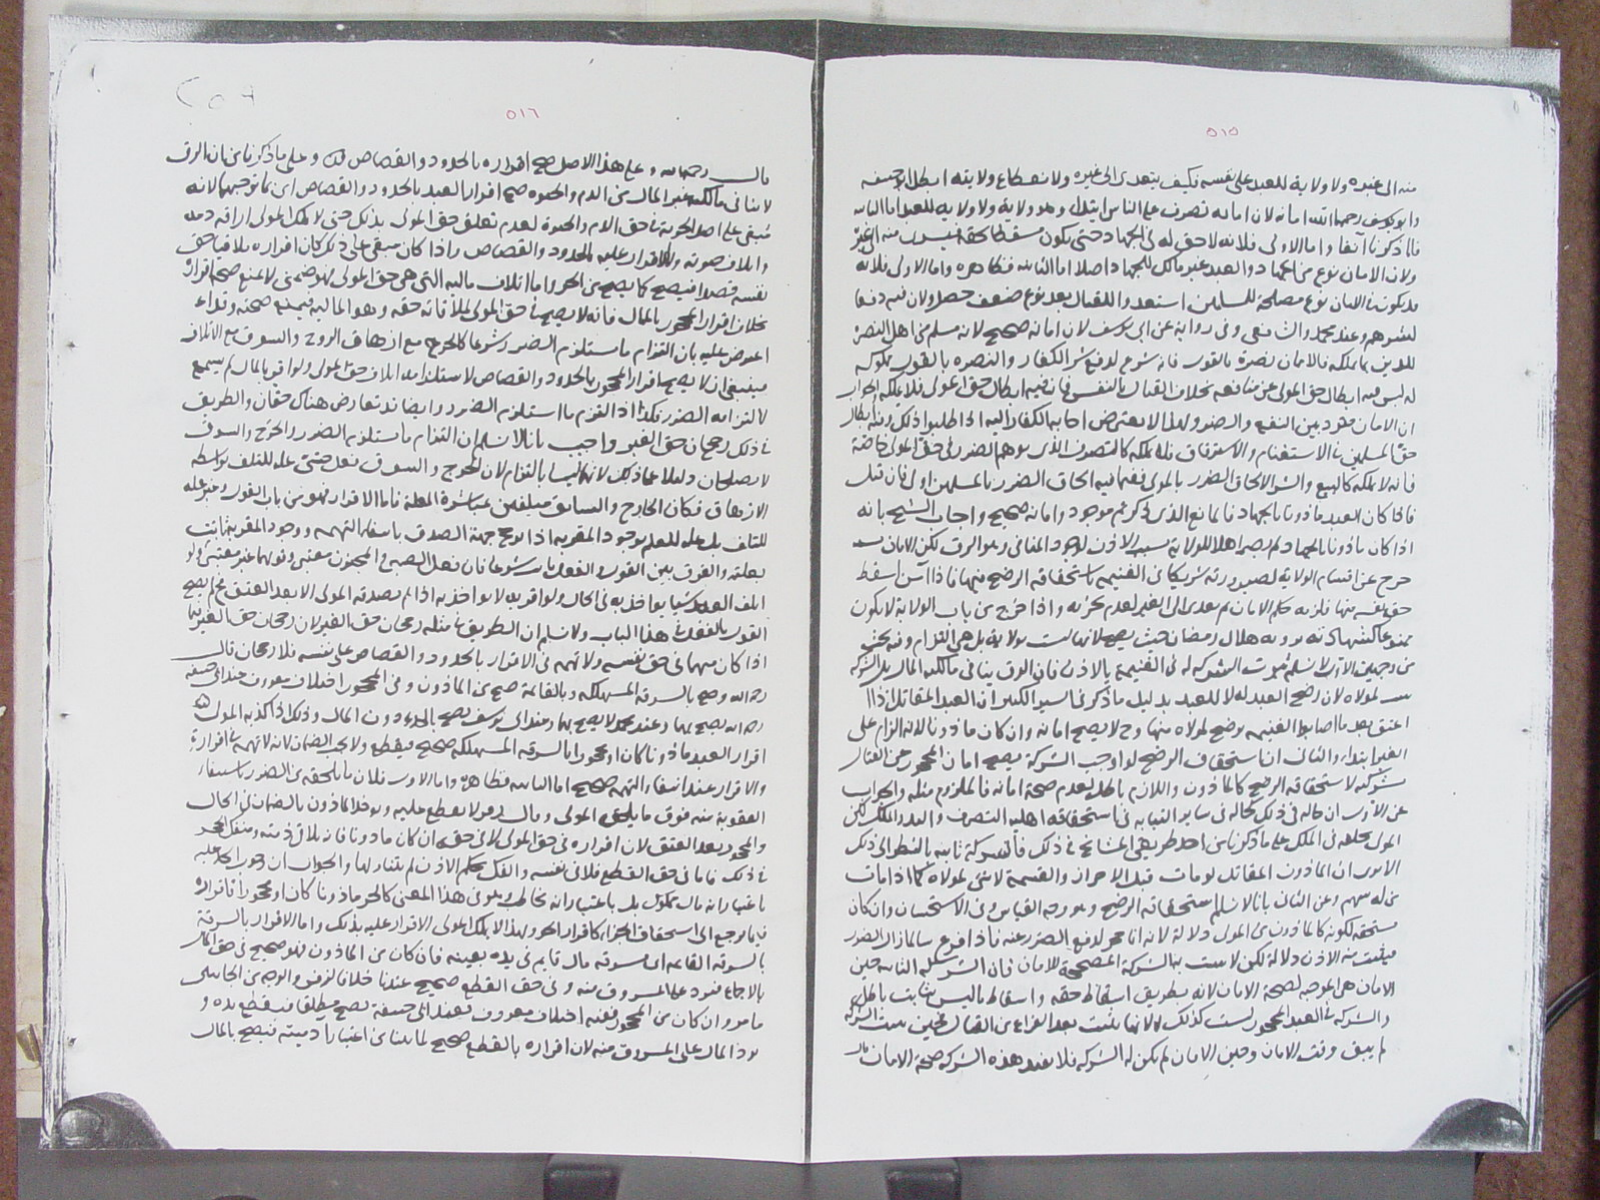 ٥١٥
منه الى غيره ولا ولاية للعبد على نفسه فكيف يتعدى الى غيره ولانقطاع ولايته ابطل ابو حنيفه
وابو يوسف رحمهما الله امانه لان امانه تصرف على الناس ابتداء وهو ولاية ولا ولاية للعبد اما الثانية
فلما ذكرنا انفا واما الاولى فلانه لا حق له فى الجهاد حتى يكون مسقطا حقه فيسرى منه الى غيره
ولان الامان نوع من الجهاد والعبد غير مالك للجهاد اصلا اما الثانية فظاهرة واما الاولى فلانه
قد يكون فى الامان نوع مصلحة للمسلمين استعدادا للقتال بعد نوع ضعف حصل ولان فيه دفعا
لشرهم وعند محمد والشافعى وفى رواية عن ابى يوسف لان امانه صحيح لانه مسلم من اهل النصرة
للدين بما يملكه فالامان نصرة بالقول فانه شرع لدفع شر الكفار والنصرة بالقول مملوكه
له ليس فيه ابطال حق المولى عن منافعه بخلاف القتال بالنفس فان فيه ابطال حق المولى فلا يملكه الجواب
ان الامان متردد بين النفع والضرر ولهذا لا يفترض اجابة الكفار اليه اذا طلبوا ذلك وفيه ابطال
حق المسلمين فى الاستغنام والاسترقاق فلا يملكه كالتصرف الذى يوهم الضرر فى حق المولى خاصة
فانه لا يملكه كالبيع والشراء لالحاق الضرر بالمولى فبما فيه الحاق الضرر بالمسلمين اولى فان قيل
فاذا كان العبد ماذونا بالجهاد فالمانع الذى ذكرتم موجود وامانه صحيح واجاب الشيخ بانه
اذا كان ماذونا بالجهاد لم يصر اهلا للولاية بسبب الاذن لوجود المنافى وهو الرق لكن الامان بسببه
خرج عن اقسام الولاية لصيرورته شريكا فى الغنيمة باستحقاقه الرضخ فيها فاذا آمن اسقط
حق نفسه فيها فلزمه حكم الامان ثم تعدى الى الغير لعدم تجزيه واذا خرج من باب الولاية لا يكون
ممنوعا كشهادته برؤية هلال رمضان حيث يصح لانها ليست بولاية بل هى التزام وفيه بحث
من وجهين الاول لا نسلم ثبوت الشركة له فى الغنيمة بالاذن فان الرق ينافى مالكية المال بل الشركة
لمولاه لان رضخ العبد له لا للعبد بدليل ما ذكر فى السير الكبير ان العبد المقاتل اذا
اعتق بعد ما اصابوا الغنيمة يرضخ لمولاه منها وح لا يصح امانه وان كان ماذونا لانه الزام على
الغير ابتداء والثانى ان استحقاق الرضخ لو اوجب الشركة يصح امان المحجور عن القتال
لشركة لاستحقاقه الرضخ كالماذون واللازم باطل لعدم صحة امانه فالملزوم مثله والجواب
عن الاول ان حاله فى ذلك كحاله فى سائر النيابة فى استحقاقه اهلية التصرف واليد والملك لكن
المولى يخلفه فى الملك على ما ذكرنا من احد طريقى المشايخ فى ذلك فالشركة ثابتة بالنظر الى ذلك
الا يرى ان الماذون المقاتل لو مات قبل الاحراز والقسمة لا شئ لمولاه كما اذا مات
من له سهم وعن الثانى بانا لا نسلم استحقاقه الرضخ وهو وجه القياس وفى الاستحسان وان كان
مستحقه لكونه كالماذون من المولى دلالة لانه انما حجر لدفع الضرر عنه فاذا فرغ سالما زال الضرر
فيثبت منه الاذن دلالة لكن لا يثبت به الشركة المصححة للامان فان الشركة الثابتة حين
الامان هى الموجبة لصحة الامان لانه بطريق اسقاط حقه واسقاط ما ليس بثابت باطل
والشركة فى العبد المحجور ليست كذلك لانها تثبت بعد الفراغ من القتال فحين ثبتت الشركة
لم يبق وقت الامان وحين الامان لم يكن له الشركة فلا تفيد هذه الشركة صحة الامان قال
٥١٦
قال رحمه الله وعلى هذا الاصل صح اقراره بالحدود والقصاص لما وعلى ما ذكرنا من ان الرق
لا ينافى مالكية غير المال من الدم والحيوة صح اقرار العبد بالحدود والقصاص اى بما توجبها لانه
مبقى على اصل الحرية فى حق الدم والحيوة لعدم تعلق حق المولى بذلك حتى لا يملك المولى اراقة دمه
واتلاف حيوته ولا الاقرار عليه بالحدود والقصاص واذا كان مبقى على ذلك كان اقراره ملاقيا حق
نفسه قصدا فيصح كما يصح من الحر واما اتلاف ماليته التى هى حق المولى فهو ضمنى لا يمنع صحة اقراره
بخلاف اقرار المحجور بالمال فانه لا يصح فى حق المولى لملاقاته حقه وهو المالية فيمنع صحته وقد
اعترض عليه بان التزام ما يستلزم الضرر شرعا كالجرح مع ازهاق الروح والسوق مع الاتلاف
فينبغى ان لا يصح اقرار المحجور بالحدود والقصاص لاستلزامه اتلاف حق المولى ولو اقر بالمال لم يسمع
لالتزامه الضرر فكذا اذا التزم ما استلزم الضرر وايضا قد تعارض هناك حقان والطريق
فى ذلك رجحان حق الغير واجيب بانا لا نسلم ان التزام ما يستلزم الضرر والجرح والسوق
لا يصلحان دليلا على ذلك لانهما ليسا بالتزام لان الجرح والسوق فعل حسى علة للتلف بواسطة
الازهاق فكان الجارح والسائق متلفين بمباشرة العلة فاما الاقرار فهو من باب القول وغير علة
للتلف بل علة للعلم بوجود المقر به اذا ترجح جهة الصدق بانتفاء التهمة ووجود المقر به ثابت
بعلته والفرق بين القول والفعل ثابت شرعا فان فعل الصبى والمجنون معتبر وقولهما غير معتبر ولو
اتلف العبد شيئا يواخذ به فى الحال ولو اقر به لا يواخذ به اذا لم يصدقه المولى الا بعد العتق فلم يصح
القول بالفعل فى هذا الباب ولا نسلم ان الطريق فى مثله رجحان حق الغير لان رجحان حق الغير انما
اذا كان متهما فى حق نفسه ولا تهمة فى الاقرار بالحدود والقصاص على نفسه فلا رجحان قال
رحمه الله وصح بالسرقة المستهلكة وبالقائمة صح من الماذون وفى المحجور اختلاف معروف عند ابى حنيفة
رحمه الله يصح بهما وعند محمد لا يصح بهما وعند ابى يوسف يصح بالحد دون المال وذلك اذا كذبه المولى
اقرار العبد ماذونا كان او محجورا بالسرقة المستهلكة صحيح فيقطع ولا يجب الضمان لانه لا تهمة فى اقراره
والاقرار عند انتفاء التهمة صحيح اما الثانية فظاهرة واما الاولى فلان ما يلحقه من الضرر باستيفاء
العقوبة منه فوق ما يلحق المولى وقال زفر لا يقطع عليه ويوخذ الماذون بالضمان فى الحال
والمحجور بعد العتق لان اقراره فى حق المولى لاقى حقه ان كان ماذونا فانه يلاقى ذمته ومنفك الحجر
فى ذلك فاما فى حق القطع فلاقى نفسه والفك بحكم الاذن لم يتناولها والجواب ان وجوب الحد عليه
باعتبار انه مال مملوك بل باعتبار انه مخاطب وهو فى هذا المعنى كالحر ماذونا كان او محجورا فاقراره
فيما يرجع الى استحقاق الجزاء كاقرار الحر ولهذا لا يملك المولى الاقرار عليه بذلك واما الاقرار بالسرقة
بالسرقة القائمة اى مسرقة مال قائم فى يده بعينه فان كان من الماذون فهو صحيح فى حق المال
بالاجماع فيرد على المسروق منه وفى حق القطع صحيح عندنا خلافا لزفر والوجه من الجانبين
ما مر وان كان من المحجور ففيه اختلاف معروف فعند ابى حنيفة يصح مطلقا فيقطع يده و
يرد المال على المسروق منه لان اقراره بالقطع صحيح لما بينا من اعتبار ادميته فيصح بالمال